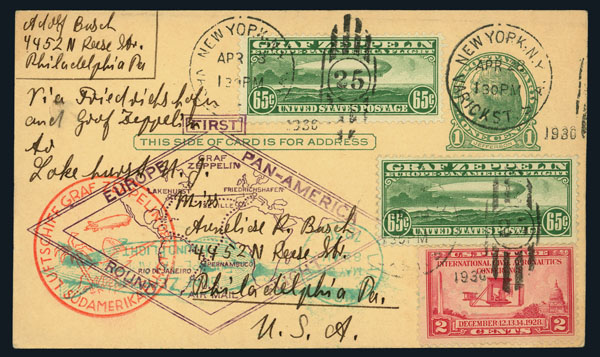 Adolf Busch
4452 N Reese Str.
Philadelphia Pa
Via Friedrichshfn
and Graf Zeppelin
to
Lakehurst N. J.
NEW YORK, N.Y.
APR
130PM
1930
GRAF ZEPPELIN
EUROPE-PAN-AMERICA FLIGHT
25
65¢ 65¢
UNITED STATES POSTAGE
NEW YORK, N.Y.
APR
130PM
VARICK ST.
1930
1 CENT 1
JEFFERSON
THIS SIDE OF CARD IS FOR ADDRESS
FIRST
EUROPE
PAN-AMERICA
ROUND
LAKEHURST
GRAF ZEPPELIN
FRIEDRICHSHAFEN
SEVILLE
PERNAMBUCO
RIO DE JANEIRO
AIR MAIL
LUFTSCHIFF GRAF ZEPPELIN
SÜDAMERIKA
Miss
Anneliese R. Busch
4452 N Reese Str.
Philadelphia Pa.
U. S. A.
GRAF ZEPPELIN
EUROPE-PAN-AMERICA FLIGHT
65¢ 65¢
UNITED STATES POSTAGE
130PM
1930
INTERNATIONAL CIVIL AERONAUTICS
CONFERENCE
2 DECEMBER.12.13.14.1928. 2
CENTS